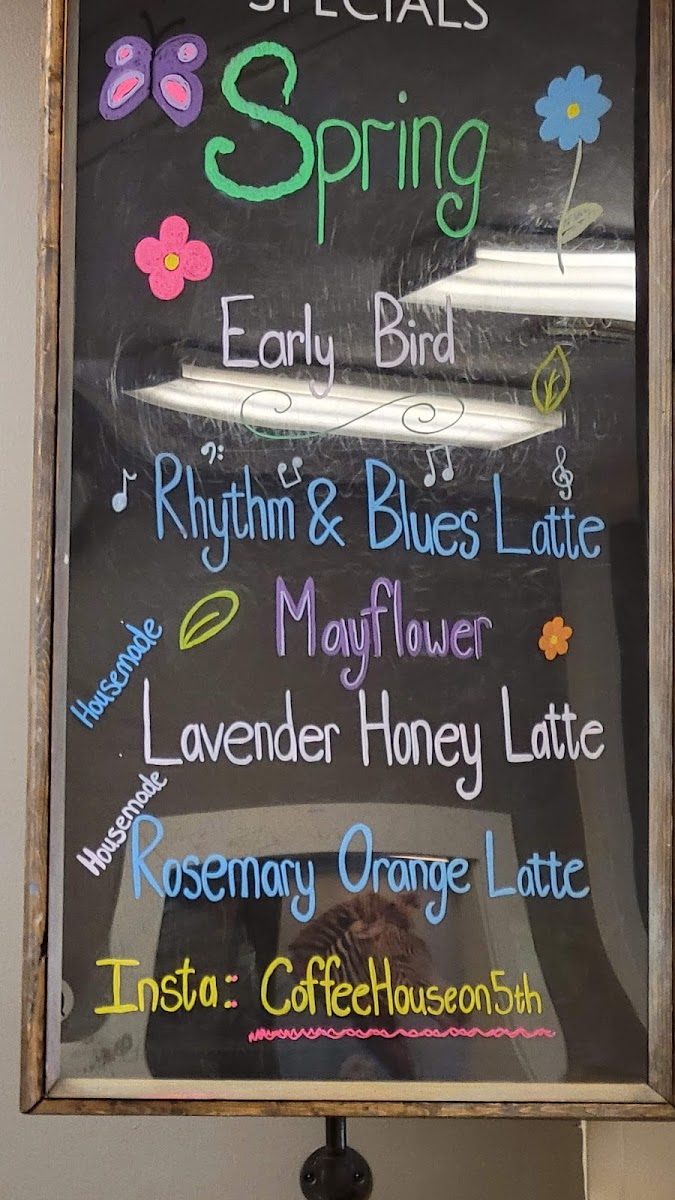 SPECIALS
Spring
Early Bird
Rhythm & Blues Latte
Mayflower
Housemade
Lavender Honey Latte
Housemade
Rosemary Orange Latte
Insta: CoffeeHouseon5th